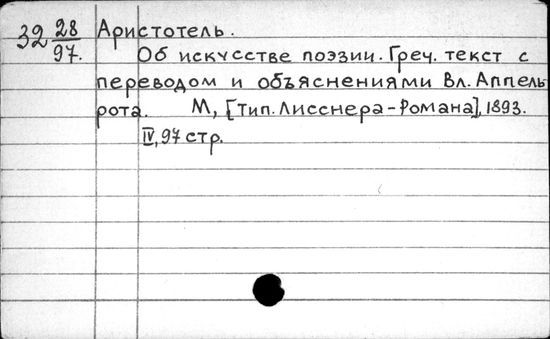 32 28/97. Аристотель.
Об искусстве поэзии. Греч. текст с
переводом и объяснениями Вл. Аппель
рота. М, [тип. Лисснера-Романа], 1893.
IV, 97 стр.